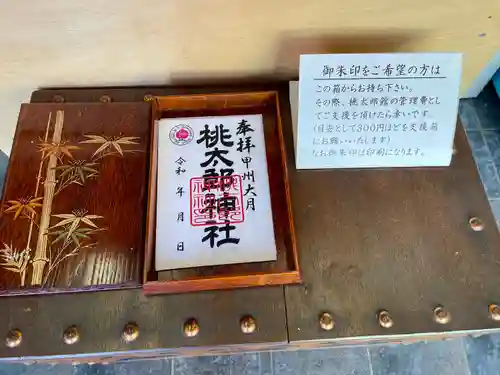 御朱印をご希望の方は
この箱からお持ち下さい。
その際、桃太郎館の管理費とし
てご支援を頂けたら幸いです。
(目安として300円ほどを支援箱
にお願いいたします)
なお御朱印は印刷になります。
奉拝 甲州大月
桃太郎神社
令和 年 月 日